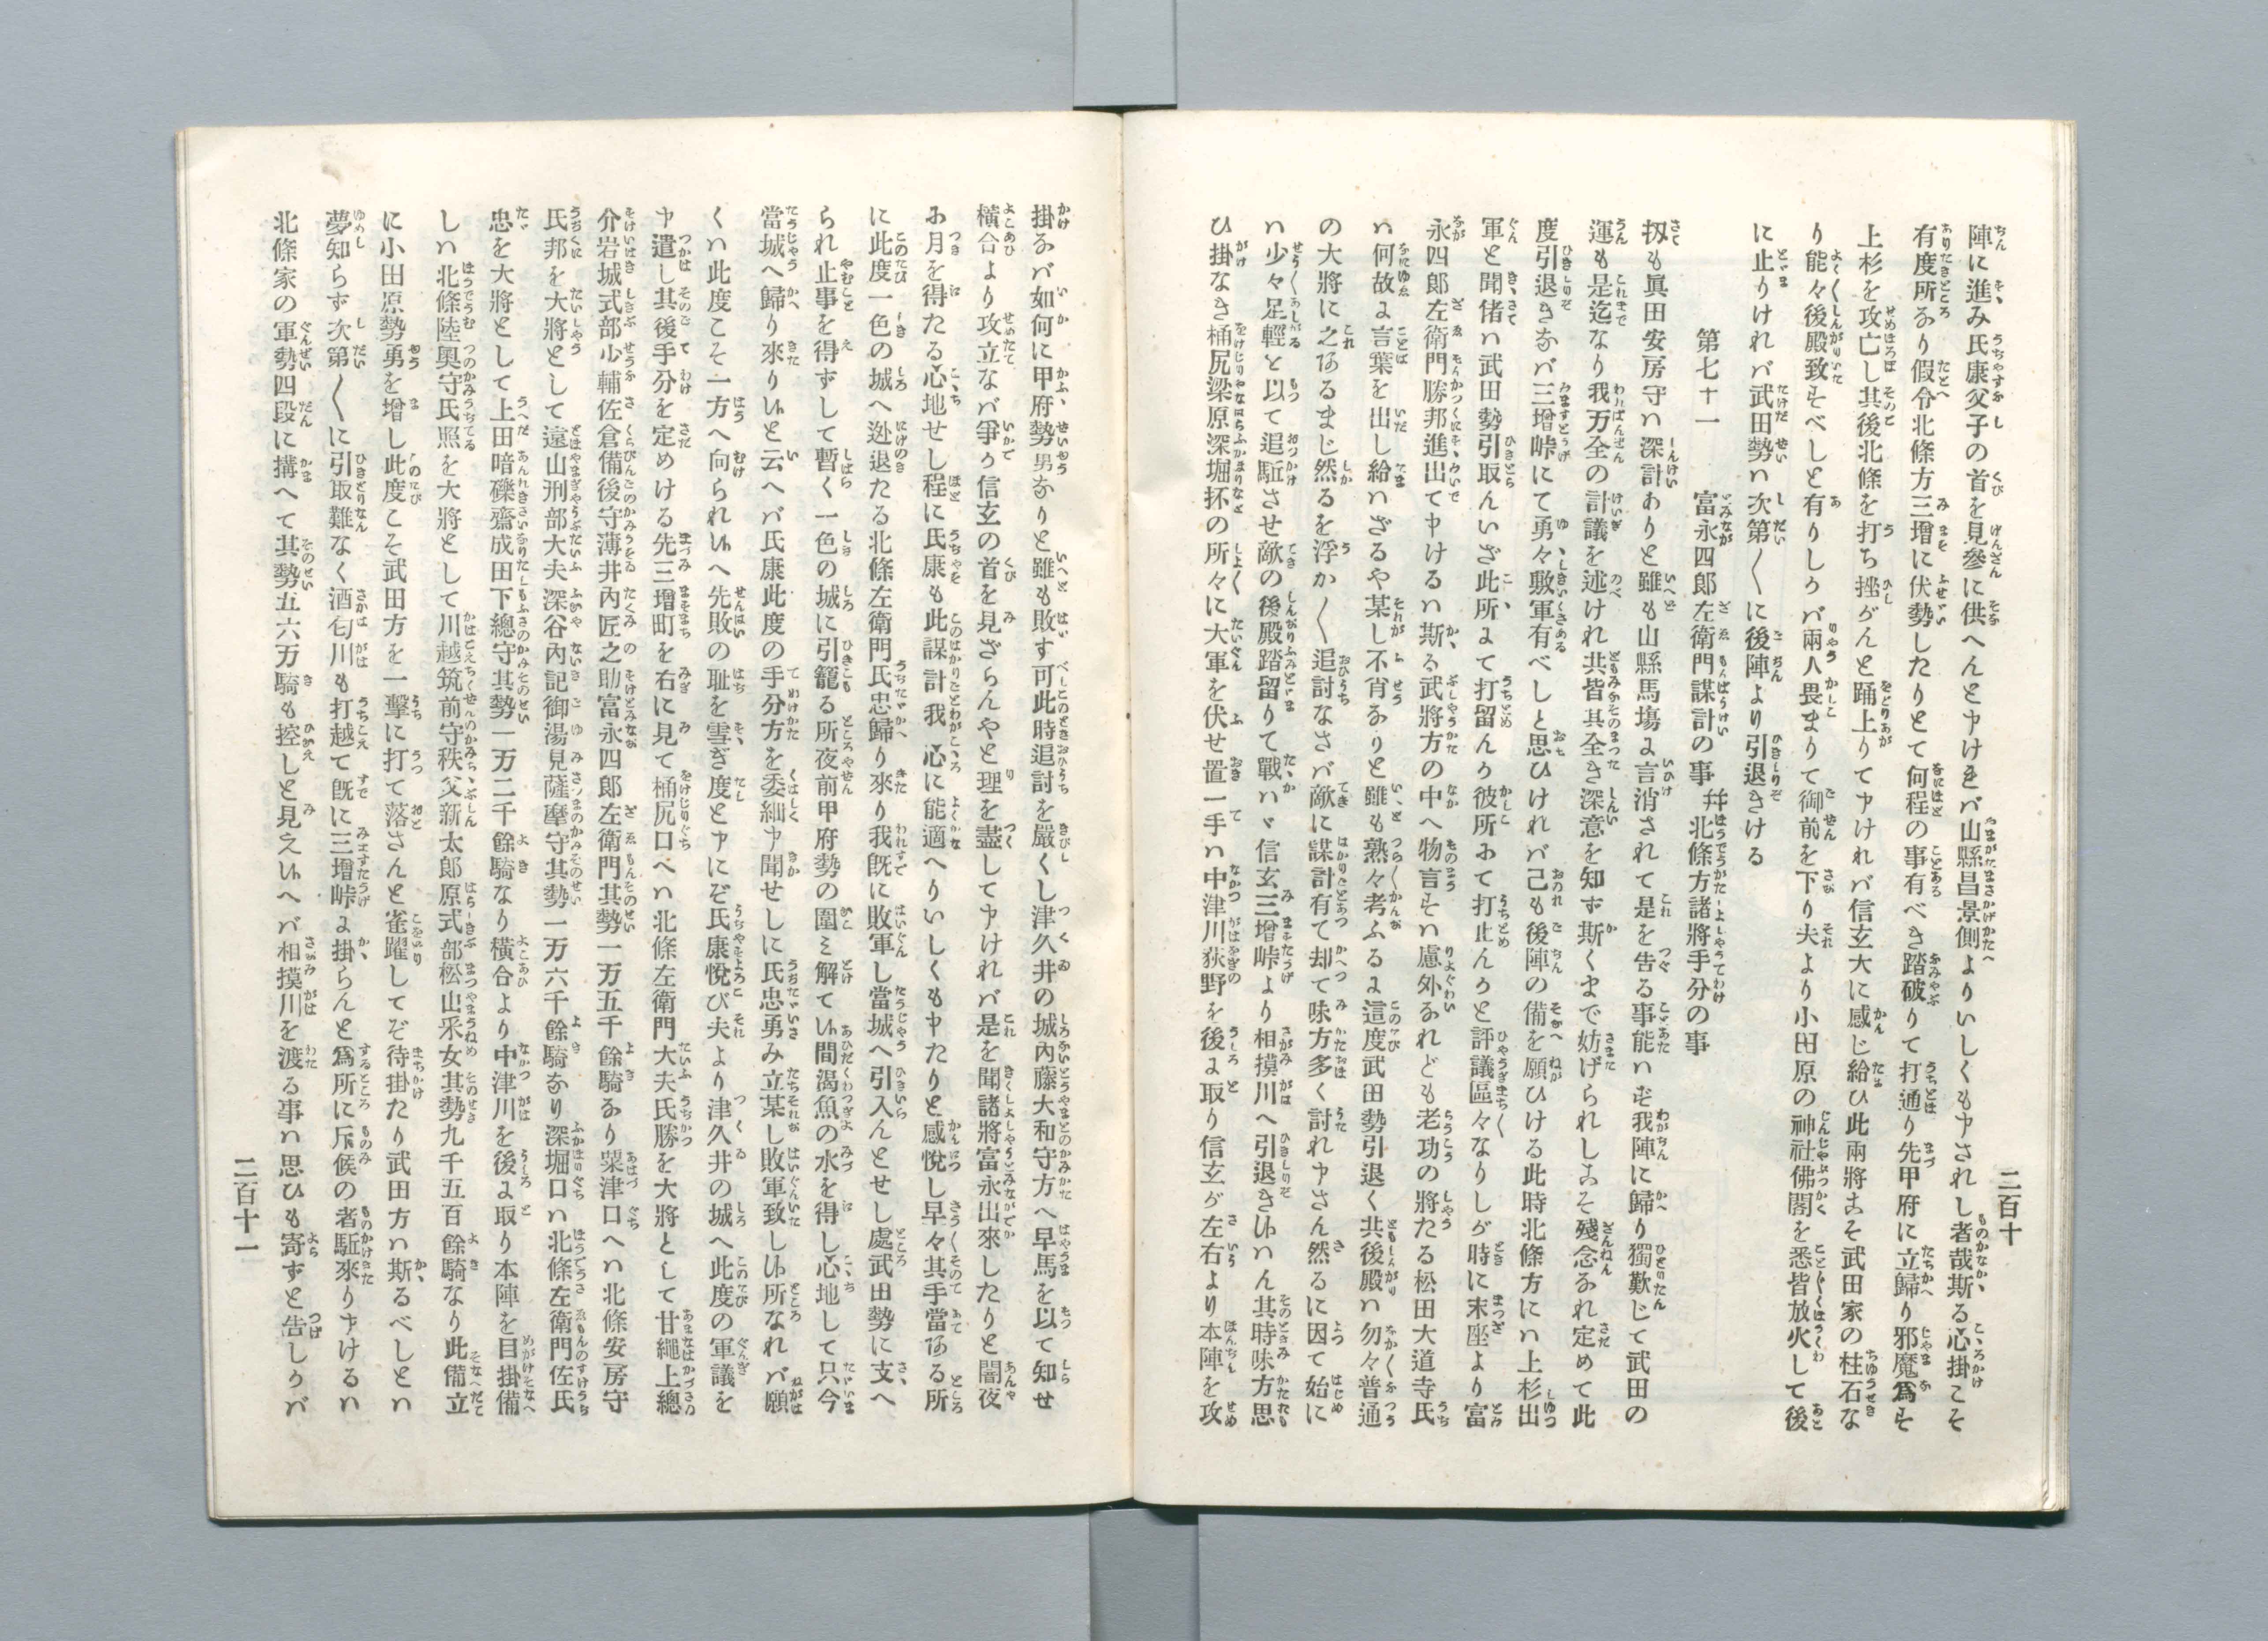 二百十
陣に進み氏康父子の首を見參に供へんと申けれバ山縣昌景側よりいしくも申されし者哉斯る心掛こそ
有度所なり假令北條方三増に伏勢したりとて何程の事有べき踏破りて打通り先甲府に立歸り邪魔爲す
上杉を攻亡し其後北條を打ち挫がんと踊上りて申けれバ信玄大に感じ給ひ此兩將こそ武田家の柱石な
り能々後殿致すべしと有りしかバ兩人畏まりて御前を下り夫より小田原の神社佛閣を悉皆放火して後
に止りけれバ武田勢ハ次第〱に後陣より引退きける
第七十一　　富永四郎左衛門謀計の事　幷北條方諸將手分の事
扨も眞田安房守ハ深計ありと雖も山縣馬塲に言消されて是を告る事能ハず我陣に歸り獨歎じて武田の
運も是迄なり我万全の計議を述けれ共皆其全き深意を知ず斯くまで妨げられしこそ殘念なれ定めて此
度引退きなバ三增峠にて勇々敷軍有べしと思ひけれバ己も後陣の備を願ひける此時北條方にハ上杉出
軍と聞偖ハ武田勢引取んいざ此所にて打留んか彼所おて打止んかと評議區々なりしが時に末座より富
永四郎左衛門勝邦進出て申けるハ斯る武將方の中へ物言すハ慮外なれども老功の將たる松田大道寺氏
ハ何故に言葉を出し給ハざるや某し不肖なりと雖も熟々考ふるに這度武田勢引退く共後殿ハ勿々普通
の大將に之あるまじ然るを浮か〱追討なさバ敵に謀計有て却て味方多く討れ申さん然るに因て始に
ハ少々足輕と以て追駈させ敵の後殿踏留りて戰ハヾ信玄三增峠より相摸川へ引退き候ハん其時味方思
ひ掛なき桶尻梁原深堀抔の所々に大軍を伏せ置一手ハ中津川荻野を後に取り信玄が左右より本陣を攻
掛なバ如何に甲府勢男なりと雖も敗す可此時追討を嚴くし津久井の城內藤大和守方へ早馬を以て知せ
橫合より攻立なバ爭か信玄の首を見ざらんやと理を盡して申けれバ是を聞諸將富永出來したりと闇夜
お月を得たる心地せし程に氏康も此謀計我心に能適へりいしくも申たりと感悅し早々其手當ある所
に此度一色の城へ迯退たる北條左衛門氏忠歸り來り我既に敗軍し當城へ引入んとせし處武田勢に支へ
られ止事を得ずして暫く一色の城に引籠る所夜前甲府勢の圍ミ解て候間渴魚の水を得し心地して只今
當城へ歸り來り候と云へバ氏康此度の手分方を委細申聞せしに氏忠勇み立某し敗軍致し候所なれバ願
くハ此度こそ一方へ向られ候へ先敗の耻を雪ぎ度と申にぞ氏康悅び夫より津久井の城へ此度の軍議を
申遣し其後手分を定めける先三增町を右に見て桶尻口へハ北條左衛門大夫氏勝を大將として甘繩上總
介岩城式部少輔佐倉備後守薄井內匠之助富永四郎左衛門其勢一万五千餘騎なり粟津口へハ北條安房守
氏邦を大將として遠山刑部大夫深谷內記御湯見薩摩守其勢一万六千餘騎なり深堀口ハ北條左衛門佐氏
忠を大將として上田暗礫齋成田下總守其勢一万二千餘騎なり橫合より中津川を後に取り本陣を目掛備
しハ北條陸奧守氏照を大將として川越筑前守秩父新太郎原式部松山釆女其勢九千五百餘騎なり此備立
に小田原勢勇を增し此度こそ武田方を一擊に打て落さんと雀躍してぞ待掛たり武田方ハ斯るべしとハ
夢知らず次第〱に引取難なく酒匂川も打越て既に三增峠に掛らんと爲所に斥候の者駈來り申けるハ
北條家の軍勢四段に搆へて其勢五六万騎も控しと見え候へバ相摸川を渡る事ハ思ひも寄ずと告しかバ
二百十一